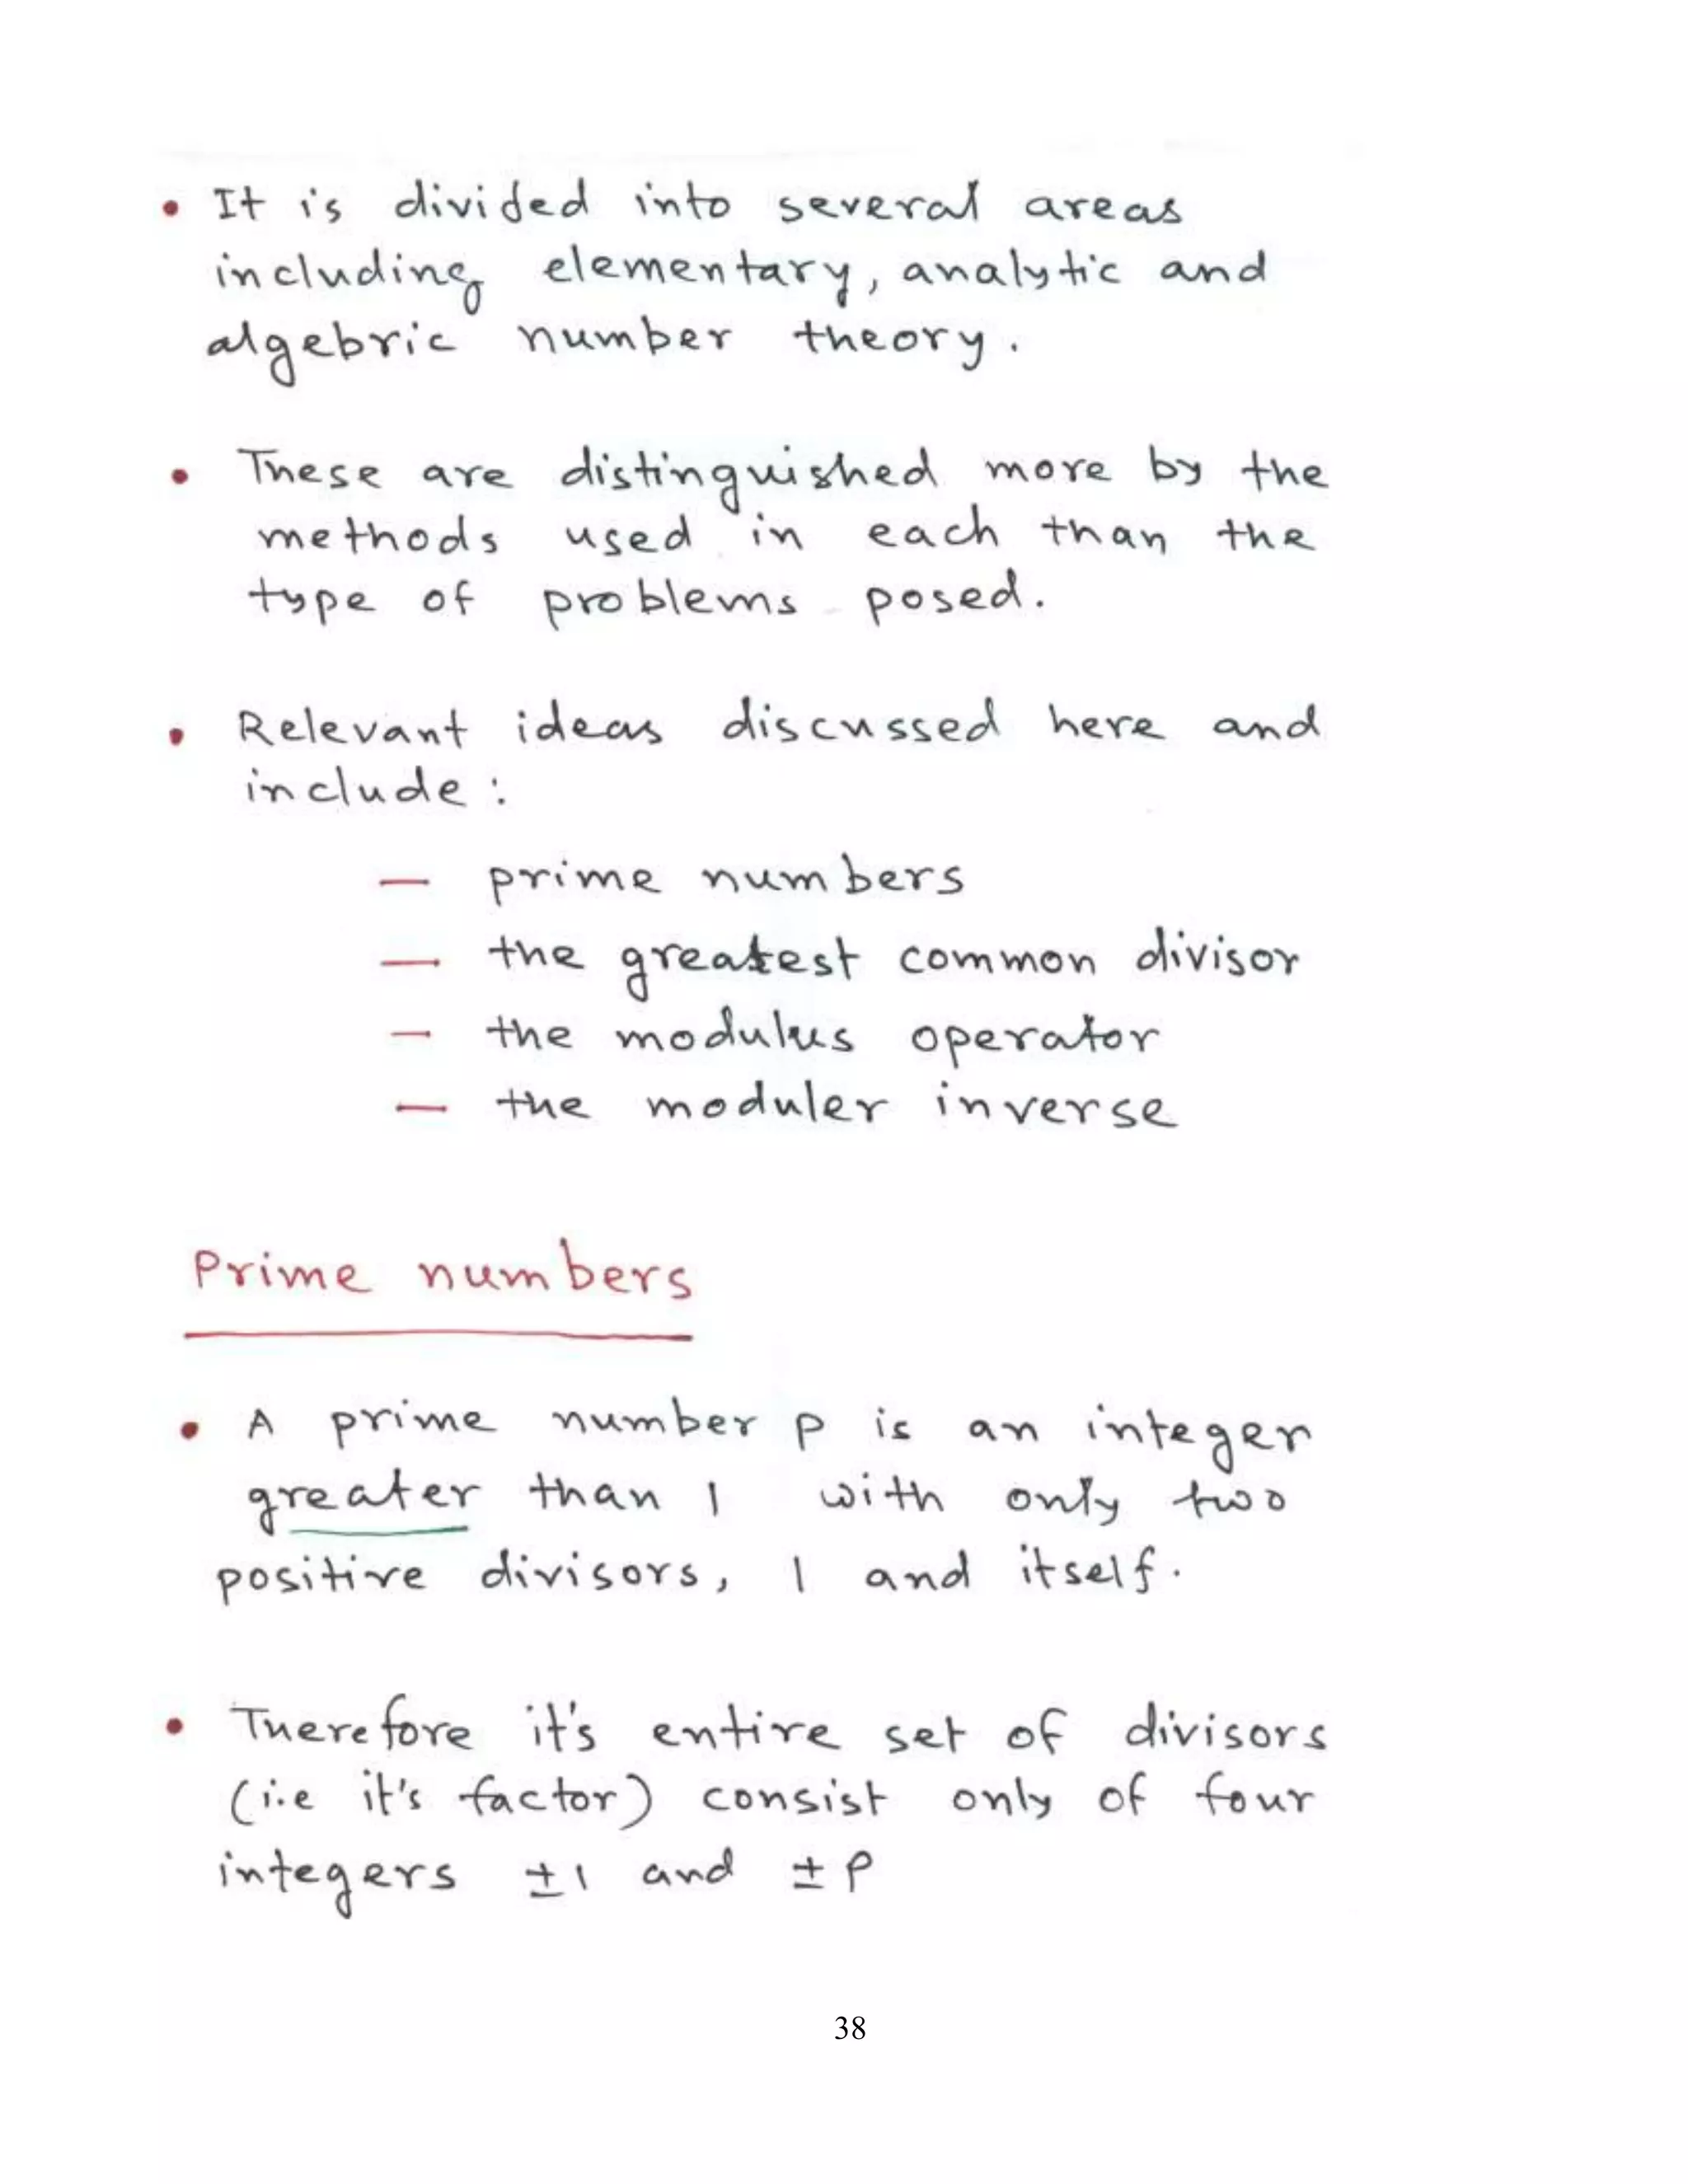 • It is divided into several areas
including elementary, analytic and
algebric number theory.
• These are distinguished more by the
methods used in each than the
type of problems posed.
• Relevant ideas discussed here and
include :
— prime numbers
— the greatest common divisor
— the modulus operator
— the moduler inverse
Prime numbers
• A prime number p is an integer
greater than 1 with only two
positive divisors, 1 and itself.
• Therefore it's entire set of divisors
(i.e it's factor) consist only of four
integers ±1 and ±P
38